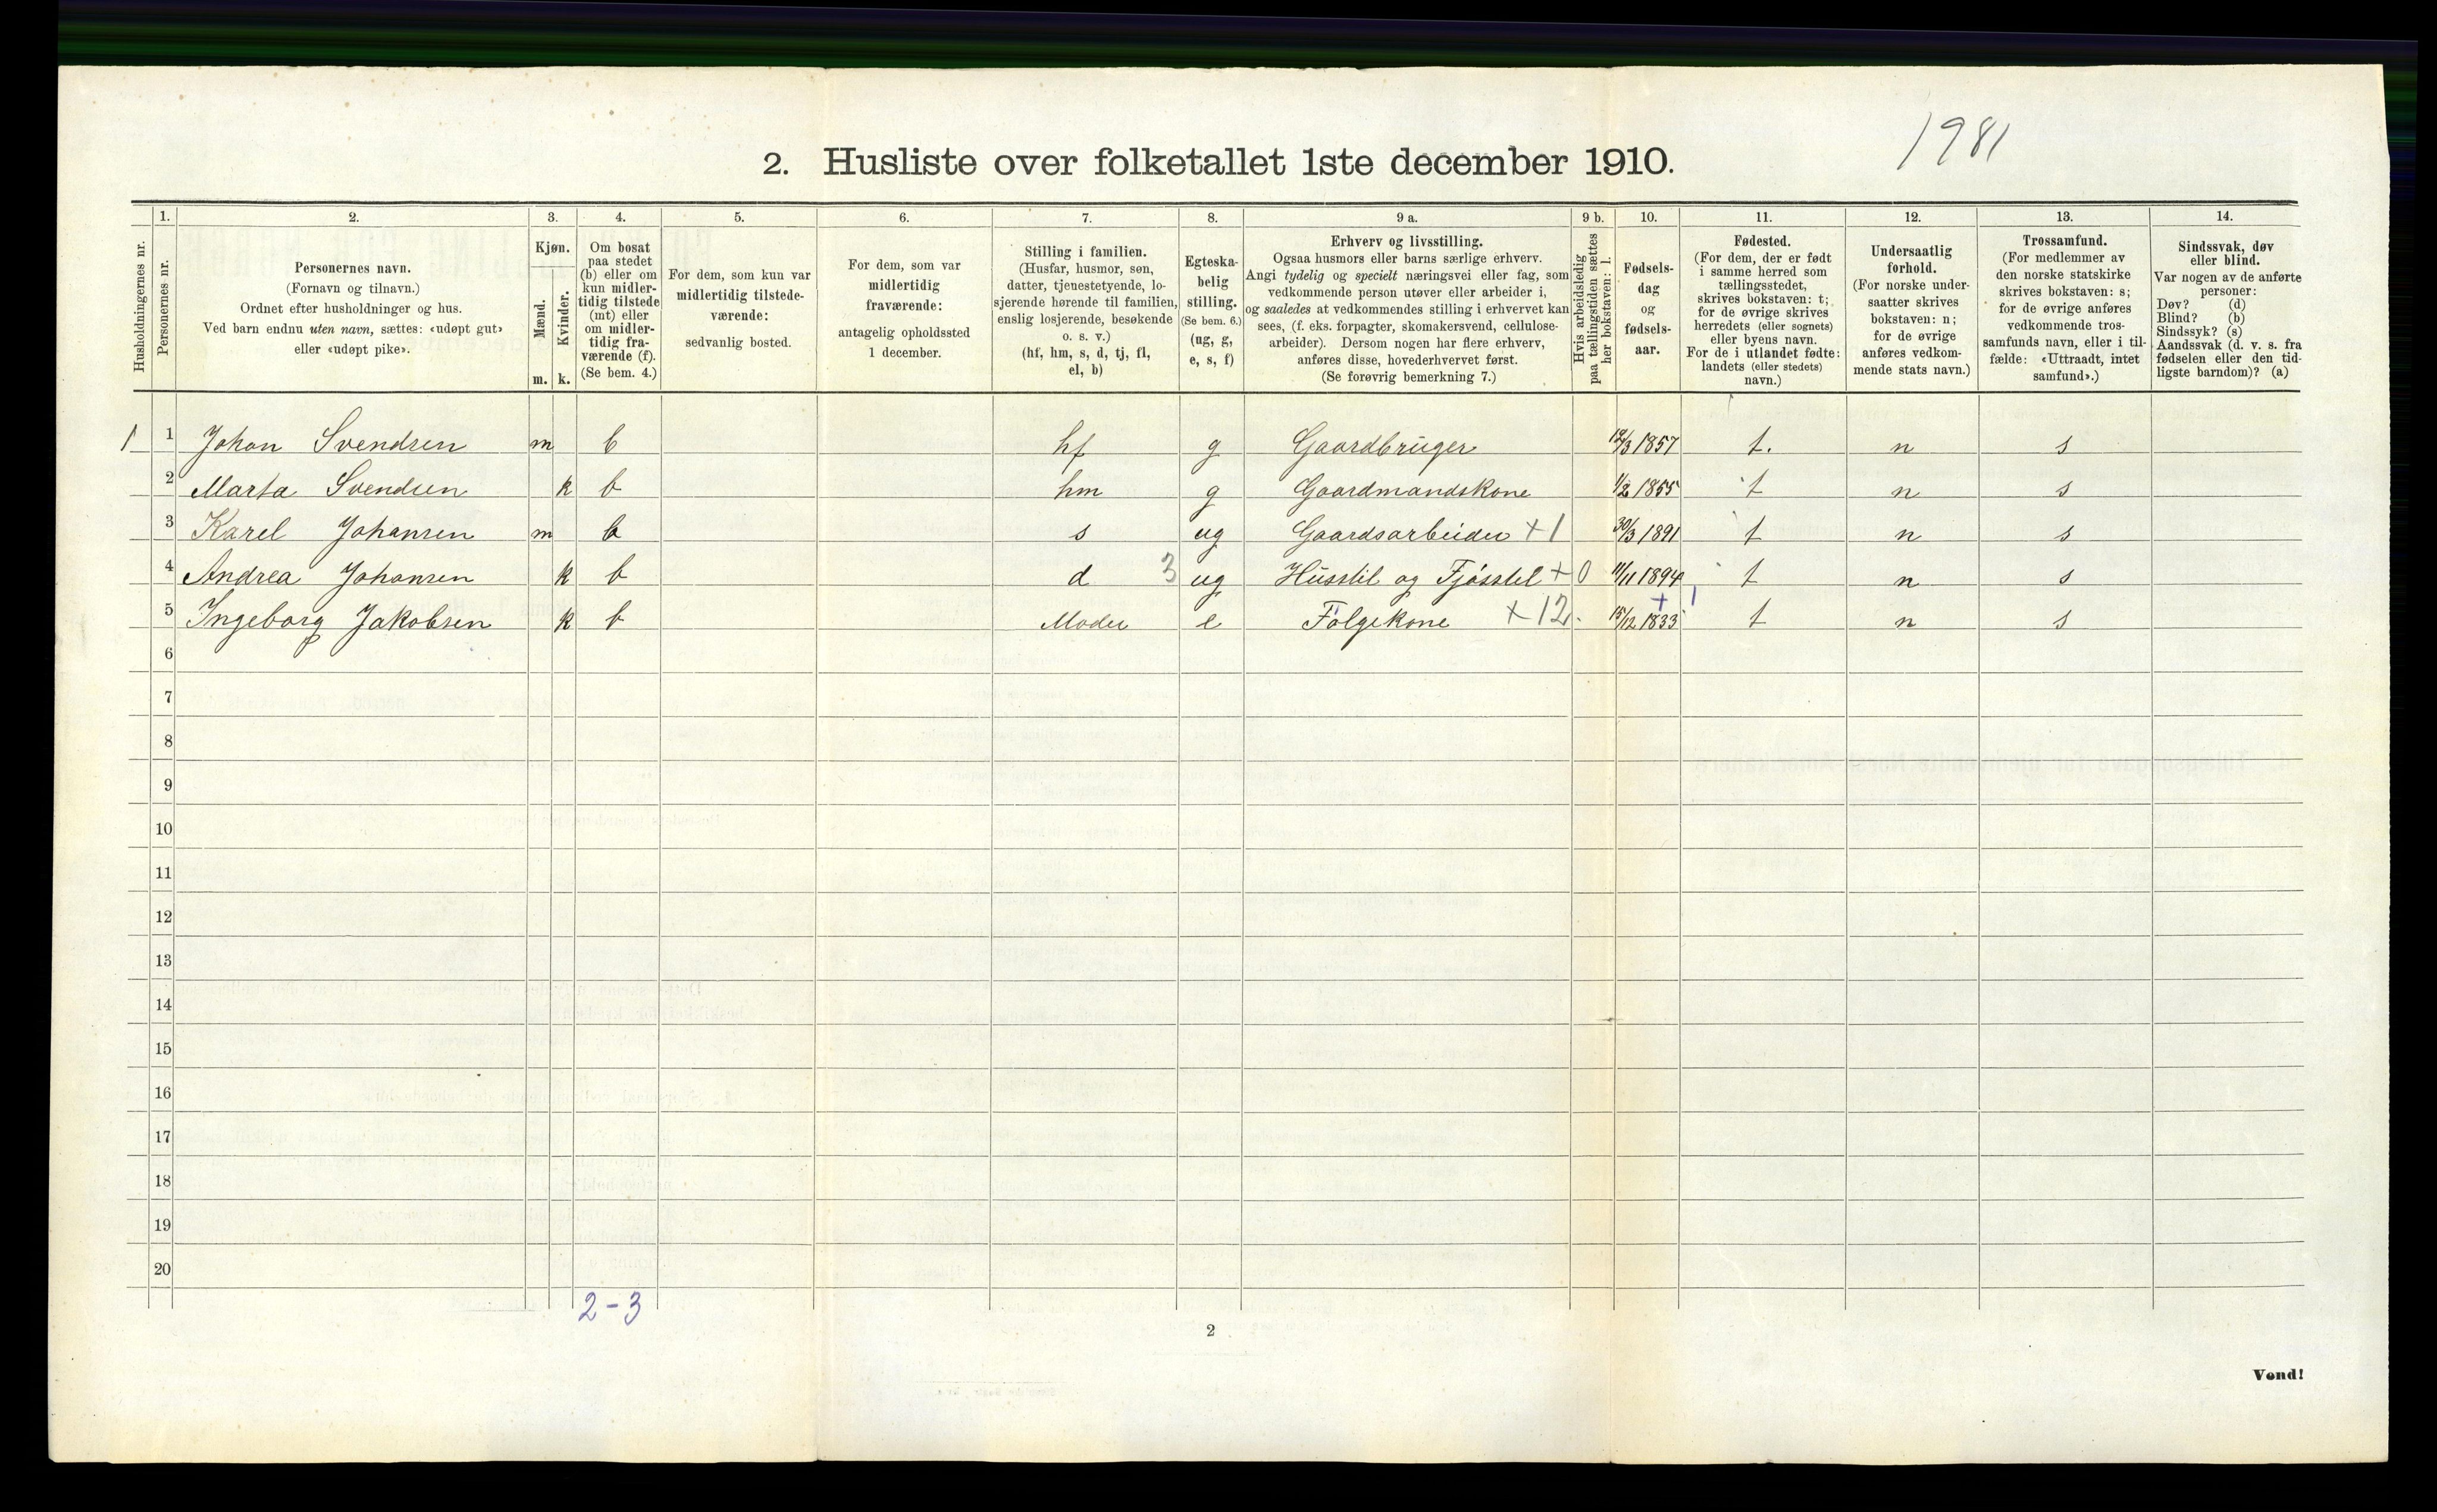 1981
2. Husliste over folketallet 1ste december 1910.
1. 2. 3. 4. 5. 6. 7. 8. 9 a. 9 b. 10. 11. 12. 13. 14.
Husholdningernes nr.
Personernes nr.
Personernes navn.
(Fornavn og tilnavn.)
Ordnet efter husholdninger og hus.
Ved barn endnu uten navn, sættes: «udøpt gut»
eller «udøpt pike».
Kjøn.
Mænd.
Kvinder.
m. k.
Om bosat
paa stedet
(b) eller om
kun midler-
tidig tilstede
(mt) eller
om midler-
tidig fra-
værende (f).
(Se bem. 4.)
For dem, som kun var
midlertidig tilstede-
værende:
sedvanlig bosted.
For dem, som var
midlertidig
fraværende:
antagelig opholdssted
1 december.
Stilling i familien.
(Husfar, husmor, søn,
datter, tjenestetyende, lo-
sjerende hørende til familien,
enslig losjerende, besøkende
o. s. v.)
(hf, hm, s, d, tj, fl,
el, b)
Egteska-
belig
stilling.
(Se bem. 6.)
(ug, g,
e, s, f)
Erhverv og livsstilling.
Ogsaa husmors eller barns særlige erhverv.
Angi tydelig og specielt næringsvei eller fag, som
vedkommende person utøver eller arbeider i,
og saaledes at vedkommendes stilling i erhvervet kan
sees, (f. eks. forpagter, skomakersvend, cellulose-
arbeider). Dersom nogen har flere erhverv,
anføres disse, hovederhvervet først.
(Se forøvrig bemerkning 7.)
Hvis arbeidsledig
paa tællingstiden sættes
her bokstaven: l.
Fødsels-
dag
og
fødsels-
aar.
Fødested.
(For dem, der er født
i samme herred som
tællingsstedet,
skrives bokstaven: t;
for de øvrige skrives
herredets (eller sognets)
eller byens navn.
For de i utlandet fødte:
landets (eller stedets)
navn.)
Undersaatlig
forhold.
(For norske under-
saatter skrives
bokstaven: n;
for de øvrige
anføres vedkom-
mende stats navn.)
Trossamfund.
(For medlemmer av
den norske statskirke
skrives bokstaven: s;
for de øvrige anføres
vedkommende tros-
samfunds navn, eller i til-
fælde: «Uttraadt, intet
samfund».)
Sindssvak, døv
eller blind.
Var nogen av de anførte
personer:
Døv? (d)
Blind? (b)
Sindssyk? (s)
Aandssvak (d. v. s. fra
fødselen eller den tid-
ligste barndom)? (a)
1 1 Johan Svendsen m b hf g Gaardbruger 12/3 1857 t. n s
2 Marta Svendsen k b hm g Gaardmandskone 1/2 1855 t n s
3 Karel Johansen m b s ug Gaardsarbeider +1 30/3 1891 t n s
4 Andrea Johansen k b d 3 ug Husstil og Fjøsstel +0 11/11 1894 t n s
5 Ingeborg Jakobsen k b Moder e Følgekone +12 15/12 1833 t n s
6
7
8
9
10
11
12
13
14
15
16
17
18
19
20
2-3
2
Vend!